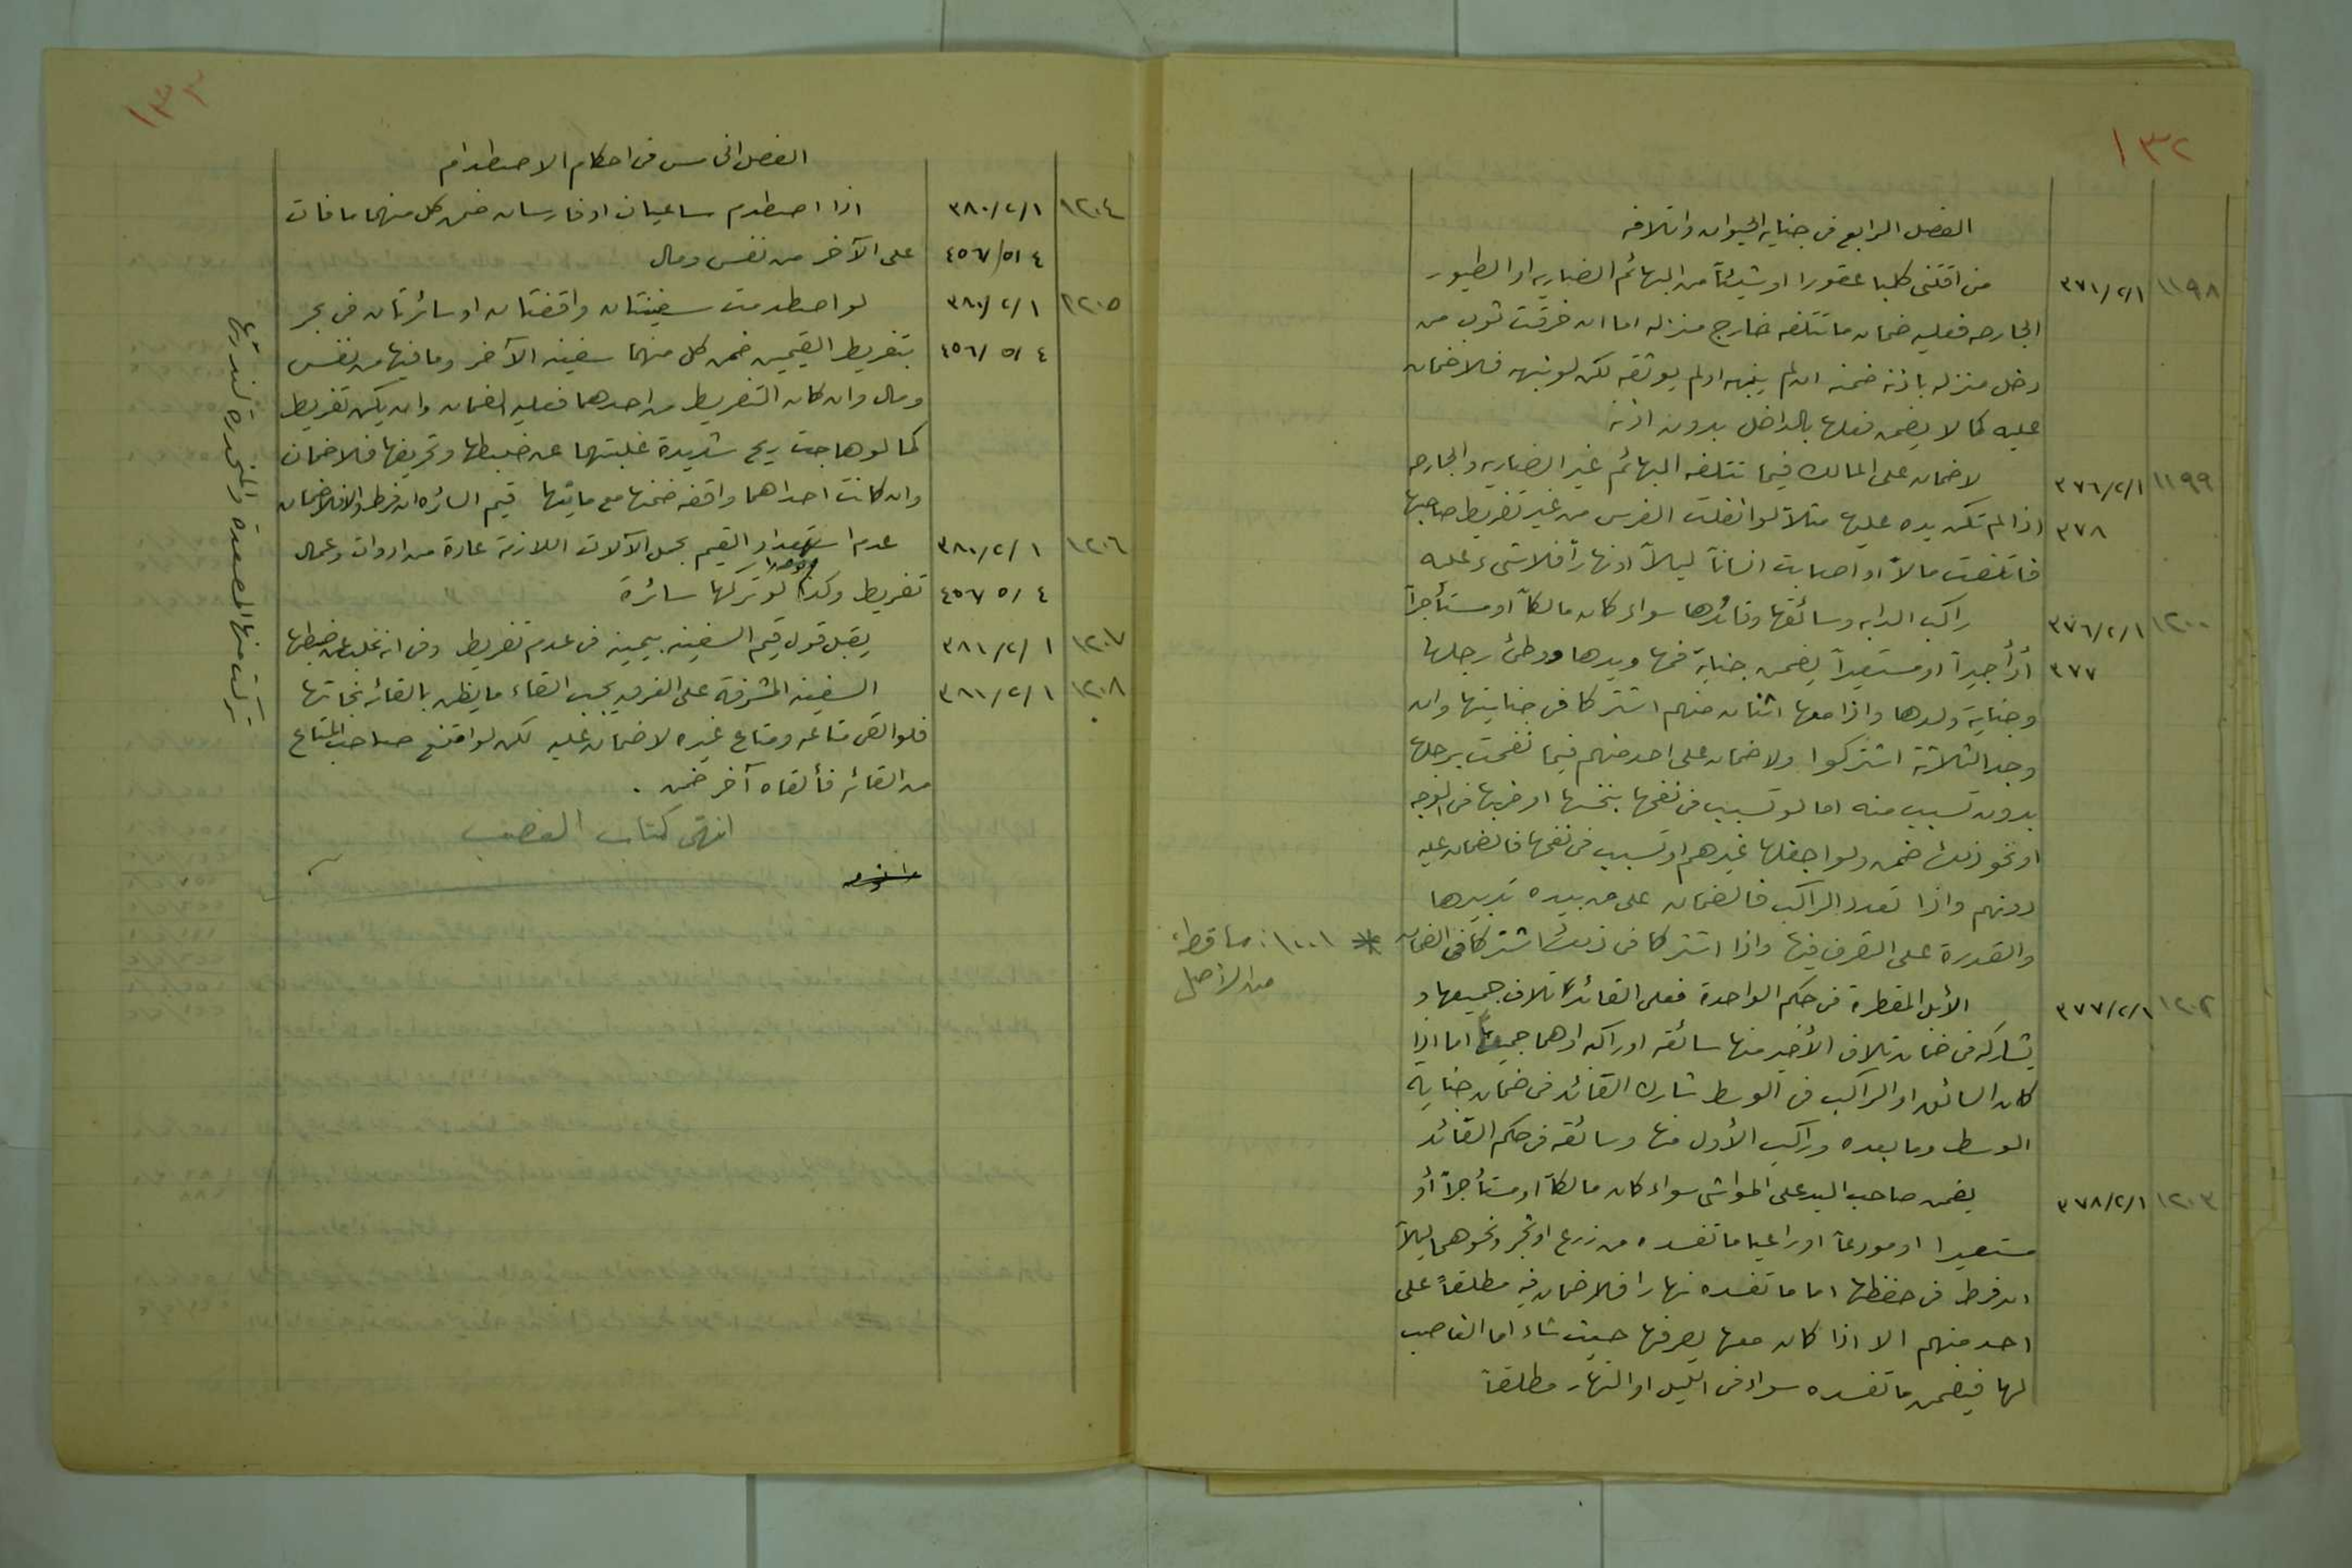 ١٣٢
الفصل الرابع في جناية الحيوان واتلافه
١١٩٨ ٣٧١/٢/١ من اقتنى كلبا عقورا او شيئاً من البهائم الضاريه او الطيور
الجارحه فعليه ضمان ما تتلفه خارج منزله اما ان خرقت ثوب من
دخل منزله باذنه ضمنه ان لم ينبهه او لم يوثقه لكن لو نبهه فلا ضمان
عليه كما لا يضمن فعلها بالداخل بدون اذنه
١١٩٩ ٣٧٦/٢/١ لا ضمان على المالك فيما تتلفه البهائم غير الضاريه والجارحه
٣٧٨ اذا لم تكن يده عليها مثلاً لو انفلتت الفرس من غير تفريط صاحبها
فاتلفت مالاً او اصابت انساناً ليلاً او نهاراً فلا شيء عليه
١٢٠٠ ٣٧٦/٢/١ راكب الدابه وسائقها وقائدها سواء كان مالكاً او مستأجراً
٣٧٧ أو أجيراً او مستعيراً يضمن جناية فمها ويدها ووطئ رجلها
وجناية ولدها واذا معها اثنان منهم اشتركا في جنايتها وان
وجد الثلاثة اشتركوا ولا ضمان على احد منهم فيما نفحت برجلها
بدون تسبب منه اما لو تسبب في نفحها بنخسها او ضربها في الوجه
او نحو ذلك ضمن ولو اجفلها غيرهم او تسبب في نفحها فالضمان عليه
دونهم واذا تعدد الراكب فالضمان على من بيده تدبيرها
والقدرة على التصرف فيها واذا اشتركا في ذلك اشتركا في الضمان
* ١٢٠١: ساقطة
من الأصل
١٢٠٢ ٣٧٧/٢/١ الأبل المقطرة في حكم الواحدة فعلى القائد اتلاف جميعها و
يشاركه في ضمان تلاف الأخير منها سائقه او راكبه او هما جميعا اما اذا
كان السائق او الراكب في الوسط شارك القائد في ضمان جناية
الوسط وما بعده وراكب الأول منها وسائقه في حكم القائد
١٢٠٣ ٣٧٨/٢/١ يضمن صاحب اليد على المواشي سواء كان مالكاً او مستأجراً أو
مستعيرا او مودعاً او راعيا ما تفسده من زرع او شجر ونحوهما ليلاً
ان فرط في حفظها اما ما تفسده نهارا فلا ضمان فيه مطلقاً على
احد منهم الا اذا كان معها يصرفها حيث شاء اما الغاصب
لها فيضمن ما تفسده سواء في الليل او النهار مطلقاً
١٣٣
الفصل الخامس في احكام الاصطدام
١٢٠٤ ٣٨٠/٢/١ اذا اصطدم ساعيان او فارسان ضمن كل منهما ما فات
٤٥٦/٥/٤ على الآخر من نفس ومال
١٢٠٥ ٣٨٠/٢/١ لو اصطدمت سفينتان واقفتان او سائرتان في بحر
٤٥٦/٥/٤ بتفريط القيمين ضمن كل منهما سفينه الآخر وما فيها من نفس
ومال وان كان التفريط من احدهما فعليه الضمان وان يكن تفريط
كما لو هاجت ريح شديدة غلبتهما عن ضبطها وتحريفها فلا ضمان
وان كانت احداهما واقفه ضمنها مع ما فيها قيم السائره ان فرط والا فلا ضمان
١٢٠٦ ٣٨٠/٢/١ عدم استعداد القيم بحمل الآلات اللازمة عادة من ادوات وعمال
٤٥٦/٥/٤ تفريط وكذا لو تركها سائرة
١٢٠٧ ٣٨١/٢/١ يقبل قول قيم السفينه بيمينه في عدم تفريط وفي انه غلب عن ضبطها
١٢٠٨ ٣٨١/٢/١ السفينه المشرفة على الغرق يجب القاء ما يظن بالقائه نجاتها
فلو القى متاعه ومتاع غيره لا ضمان عليه لكن لو امتنع صاحب المتاع
من القائه فألقاه آخر ضمن .
انتهى كتاب الغصب
تركت منها المصعدة والمنحدرة لندرتها